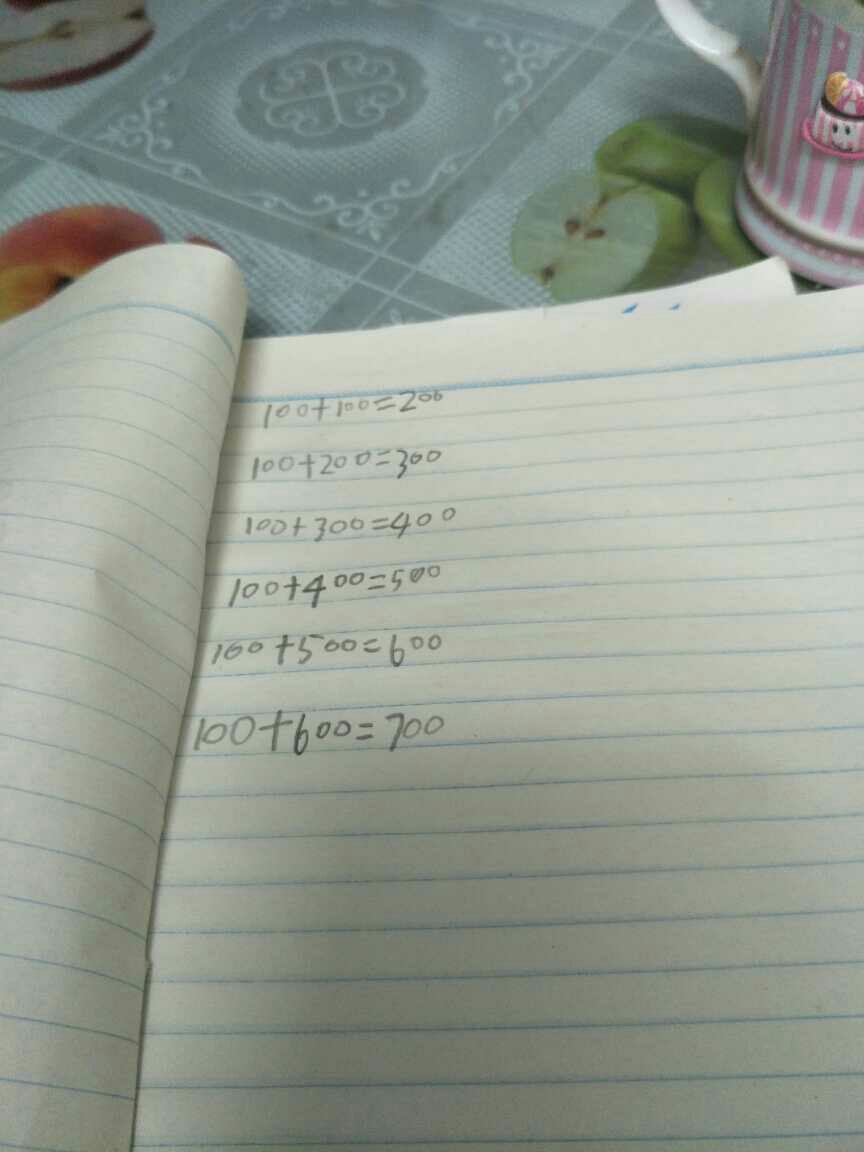 100+100=200
100+200=300
100+300=400
100+400=500
100+500=600
100+600=700